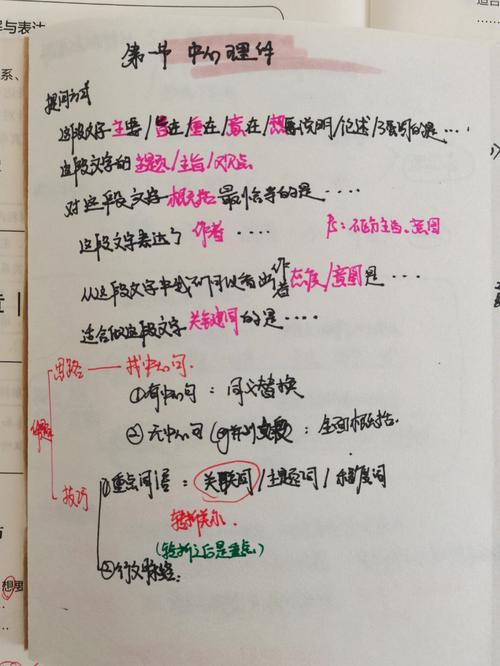 解与表达
第一节 中心理件
提问方式
这段文字主要/旨在/重在/意在/想要说明/论述/强调的是…
这段文字的主题/主旨/观点
对这段文字概括最恰当的是····
这段文字表达了作者····
从这段文字中我们可以看出作者态度/意图是…
适合做这段文字关键词的是····
思路——找中心句.
①有中心句：同义替换
②无中心句(并列文段)：全面概括.
技巧
①重点词语：关联词/主题词/程度词
转折关系.
(转折之后是重点)
②行文脉络:
想要